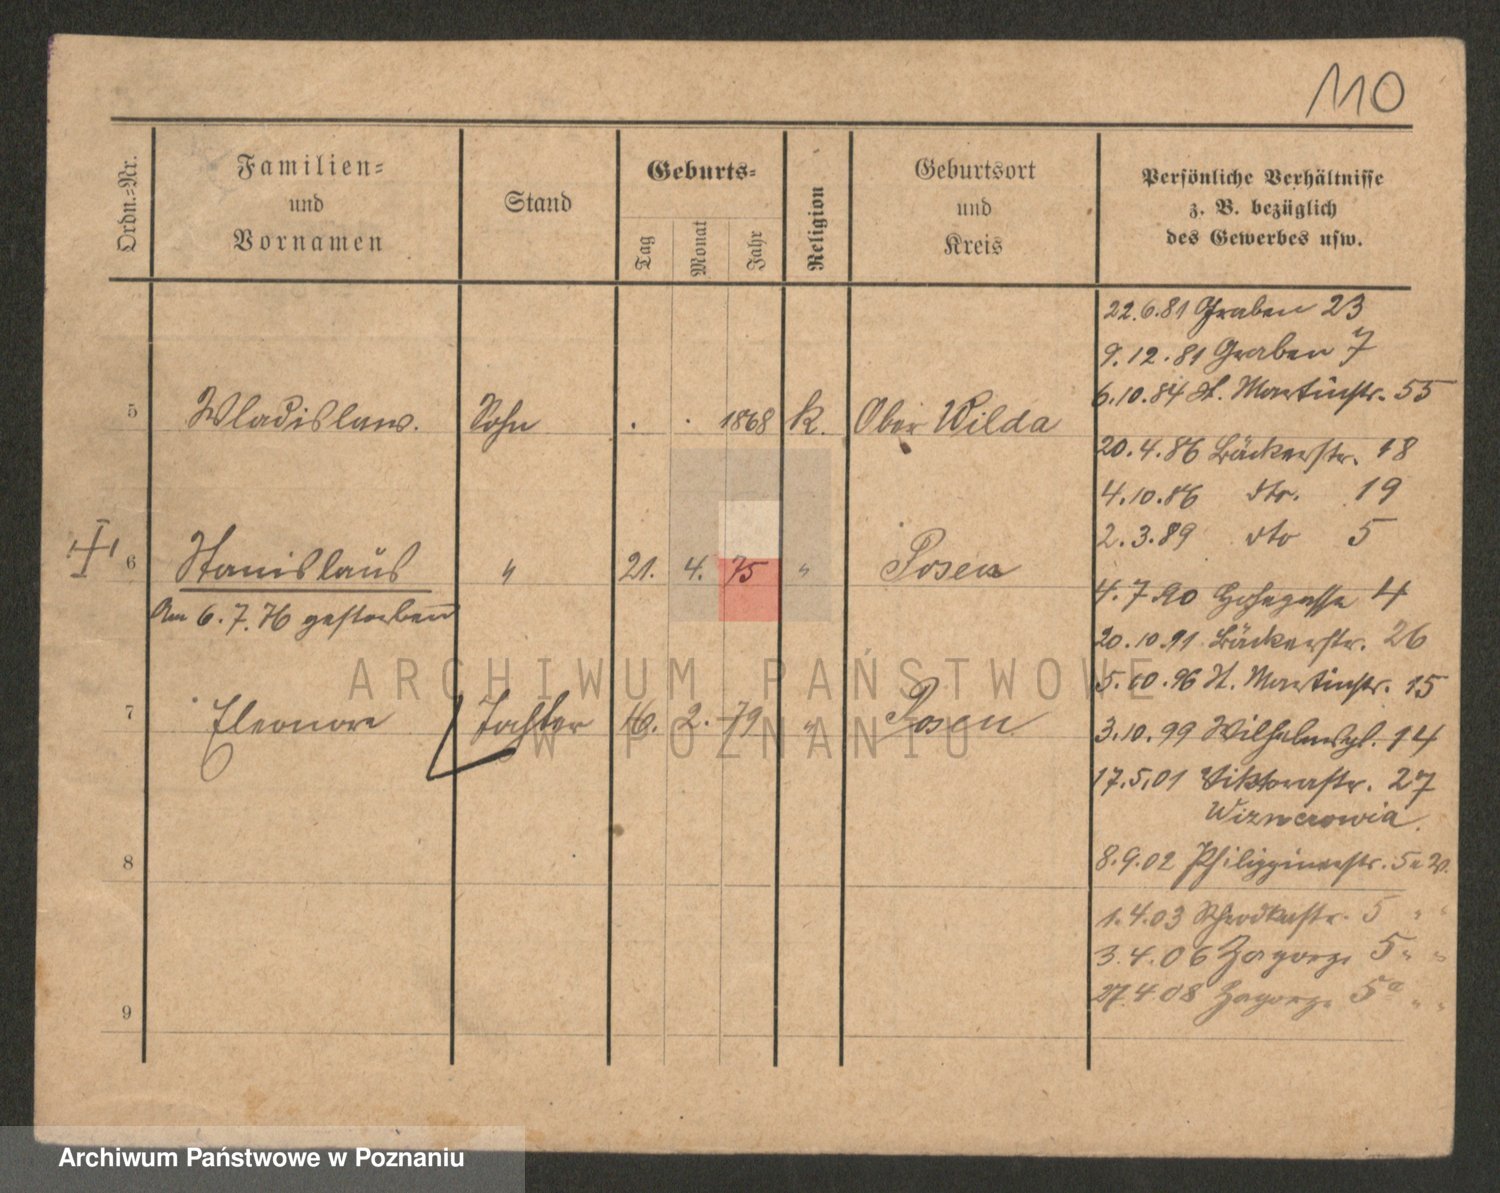 110
Ordn.=Nr.
Familien=
und
Vornamen
Stand
Geburts=
Tag
Monat
Jahr
Religion
Geburtsort
und
Kreis
Persönliche Verhältnisse
z. B. bezüglich
des Gewerbes usw.
5 Wladislaus. Sohn . . 1868 k. Ober Wilda
6 Stanislaus " 21. 4. 75 " Posen
Am 6. 7. 76 gestorben
7 Eleonore Tochter 16. 2. 79 " Posen
8
9
22.6.81 Graben 23
9.12.81 Graben 7
6.10.84 St. Martinstr. 55
20.4.86 Bäckerstr. 18
4.10.86 dto. 19
2.3.89 dto 5
4.7.90 Hohegasse 4
20.10.91 Bäckerstr. 26
5.10.96 St. Martinstr. 15
3.10.99 Wilhelmspl. 14
17.5.01 Viktoriastr. 27
8.9.02 Philippinenstr. 5
1.4.03 Schrodkastr. 5 " "
3.4.06 Zagorze 5 " "
27.4.08 Zagorze 5a " "
ARCHIWUM PAŃSTWOWE
W POZNANIU
Archiwum Państwowe w Poznaniu